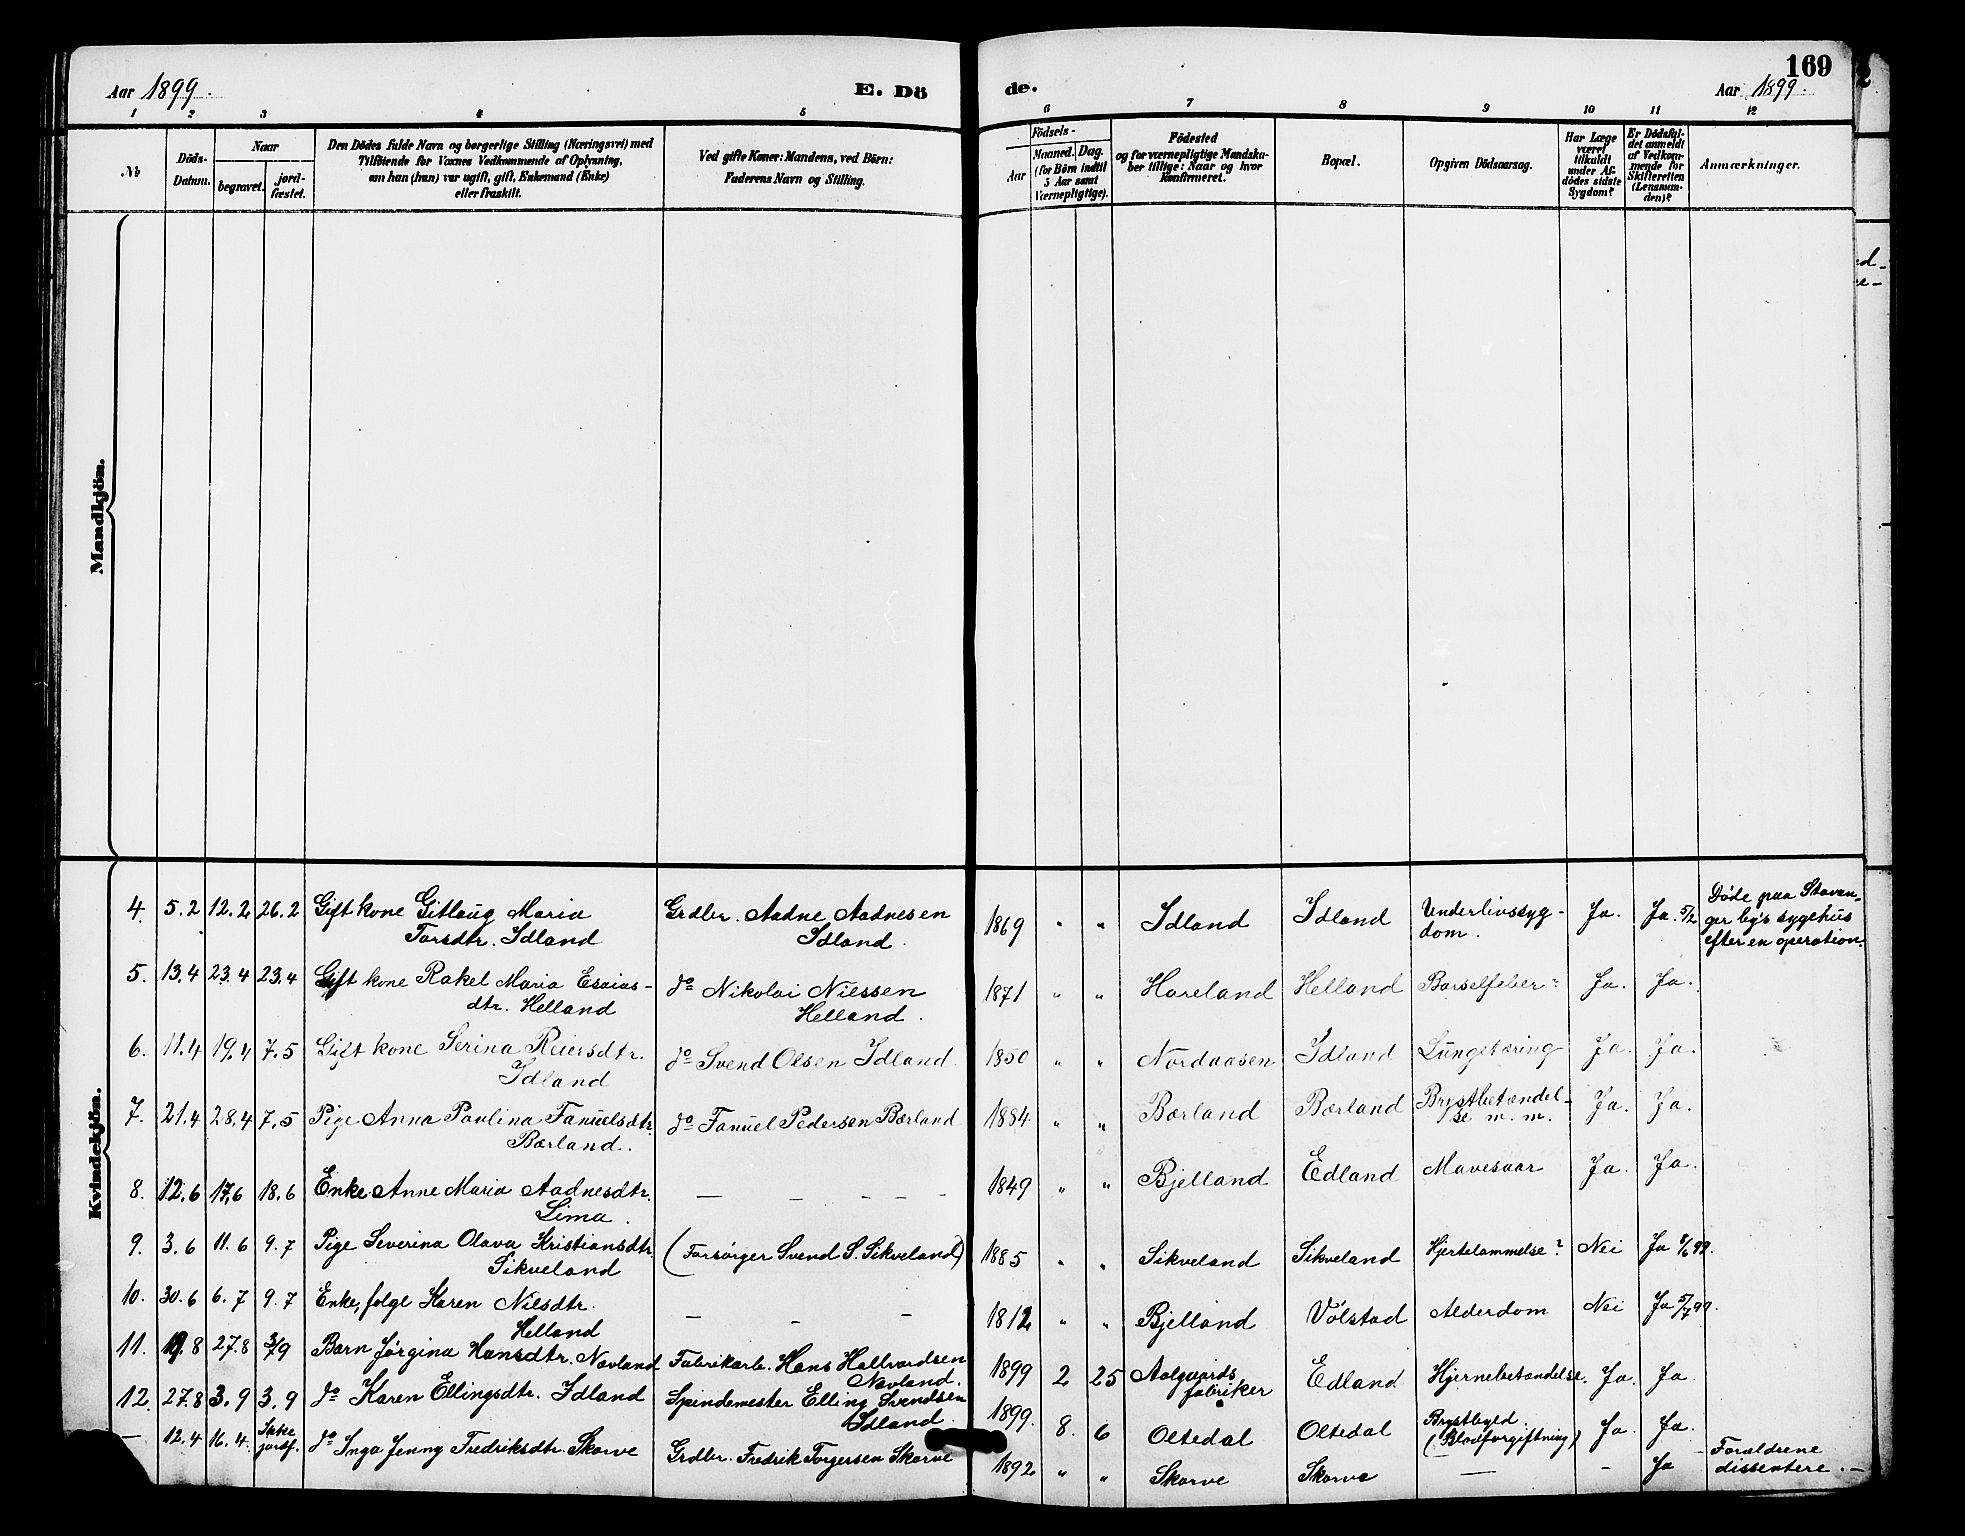 Aar 1899.
E. Dö
de.
169
Aar 1899.
1 2 3 4 5 6 7 8 9 10 11 12
No
Döds-
Datum.
Naar
begravet.
jord-
fæstet.
Den Dödes fulde Navn og borgerlige Stilling (Næringsvei) med
Tilföiende for Voxnes Vedkommende af Oplysning,
om han (hun) var ugift, gift, Enkemand (Enke)
eller fraskilt.
Ved gifte Koner: Mandens, ved Börn:
Faderens Navn og Stilling.
Födsels-
Aar
Maaned.
Dag.
(for Börn indtil
5 Aar samt
Værnepligtige).
Födested
og for værnepligtige Mandska-
ber tillige: Naar og hvor
Konfirmeret.
Bopæl.
Opgiven Dödsaarsag.
Har Læge
været
tilkaldt
under Af-
dödes sidste
Sygdom?
Er Dödsfal-
det anmeldt
af Vedkom-
mende for
Skifteretten
(Lensman-
den)?
Anmærkninger.
Mandkjön.
Kvindekjön.
4. 5.2 12.2 26.2 Gift kone Gitlaug Maria Grdbr. Aadne Aadnesen 1869 " " Idland Idland Underlivssyg- Ja. Ja. 5/2 Døde paa Stavan-
Torsdtr. Idland Idland. dom. ger by's sygehus
efter en operation.
5. 13.4 23.4 23.4 Gift kone Rakel Maria Esaias- do Nikolai Nilssen 1871 " " Hareland Helland Barselfeber? Ja. Ja.
dtr. Helland Helland.
6. 11.4 19.4 7.5 Gift kone Serina Reiersdtr. do Svend Olsen Idland 1850 " " Nordaasen Idland Lungetæring Ja. Ja.
Idland
7. 21.4 28.4 7.5 Pige Anna Paulina Fanuelsdtr. do Fanuel Pedersen Bærland 1884 " " Bærland Bærland Brystbetændel- Ja. Ja.
Bærland. se m. m.
8. 12.6 17.6 18.6 Enke Anne Maria Aadnesdtr. — — — — — 1849 " " Bjelland Edland Mavesaar Ja. Ja.
Lima.
9. 3.6 11.6 9.7 Pige Severina Olava Kristiansdtr. (Forsørger Svend S. Sikveland) 1885 " " Sikveland Sikveland Hjertelammelse? Nei Ja 99.
Sikveland
10. 30.6 6.7 9.7 Enke, folge Karen Nilsdtr. — — — 1812 " " Bjelland Vølstad Alderdom Nei Ja 5/7 99.
Helland
11. 19.8 27.8 3/9 Barn Jørgina Hansdtr. Navland Fabrikarb. Hans Hallvardsen 1899 2 25 Aalgaards Edland Hjernebetændelse. Ja. Ja.
Navland. fabriker
12. 27.8 3.9 3.9 do Karen Ellingsdtr. Idland Spindemester Elling Svendsen 1899. 8. 6 Oltedal Oltedal Brystbyld. Ja. Ja.
Idland. (Blodforgiftning)
— 12.4 16.4. Ikke do Inga Jenny Fredriksdtr. Skorve Grdbr. Fredrik Torgersen Skorve 1892 " " Skorve Skorve — - Ja Forældrene
jordf. dissentere. —